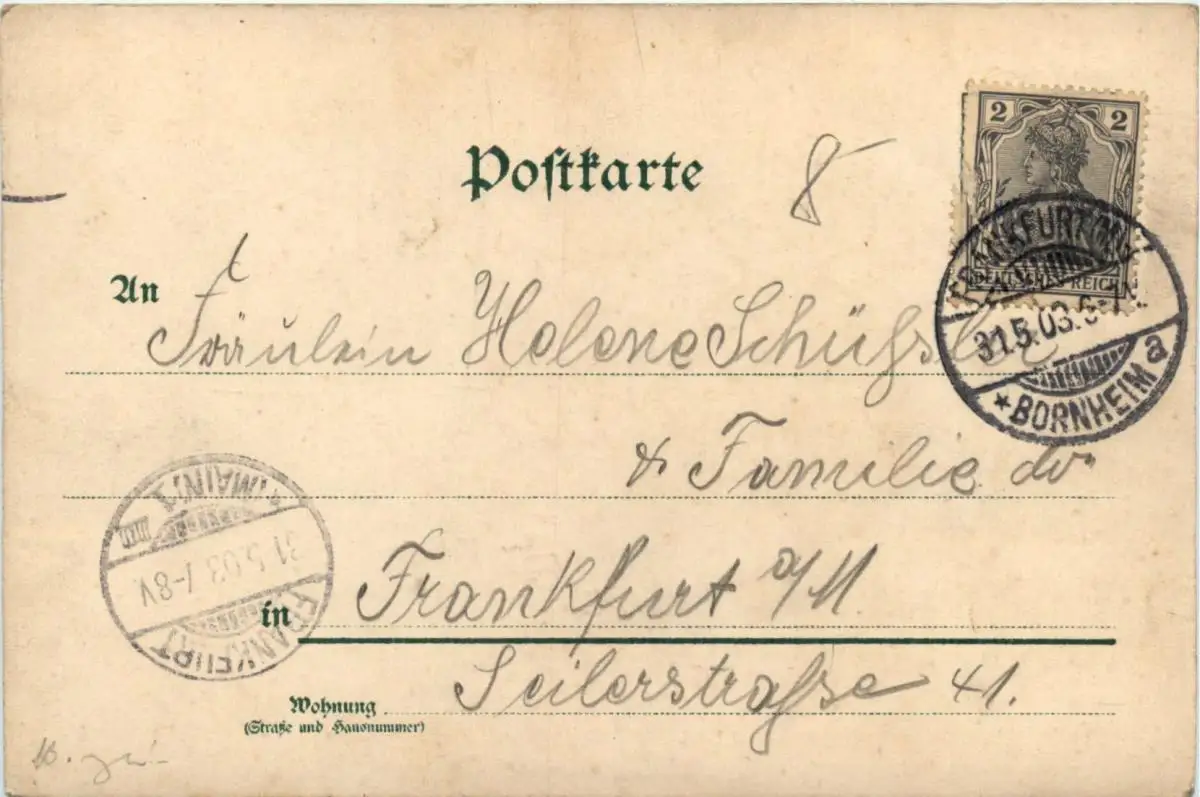 Postkarte
8
2 2
DEUTSCHES REICH
FRANKFURT (M)
31.5.03.6-7
* BORNHEIM a
An Fräulein Helene
& Familie do
Frankfurt a/M.
in
Seilerstrasse 41.
Wohnung
(Straße und Hausnummer)
* (MAIN) 1
31.5.03 7-8V.
FRANKFURT